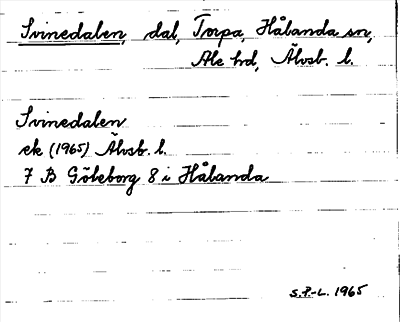 Svinedalen, dal, Torpa, Hålanda sn,
Ale hd, Älvsb. l.
Svinedalen
ek (1965) Älvsb. l.
7 B Göteborg 8 i Hålanda
S.P.-L. 1965